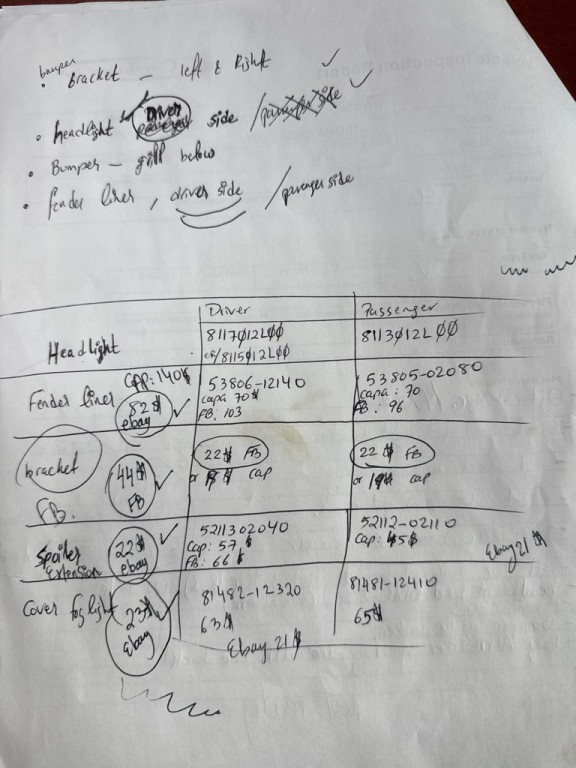 bumper
• Bracket – left & Right
• headlight Driver side / passenger side
• Bumper – grill below
• fender liner, driver side / passenger side
Driver Passenger
Headlight
8117012L00
or/8115012L00
8113012L00
Fender liner
Cap: 140$
82$
ebay
53806-12140
capa 70$
FB. 103
53805-02080
capa: 70
FB: 96
bracket
FB.
44$
FB
22$ FB
or cap
22$ FB
or cap
Spoiler
Extension
22$
ebay
5211302040
Cap: 57$
FB: 66$
52112-02110
Cap: 45$
Ebay 21$
Cover foglight
23$
Ebay
81482-12320
63$
Ebay 21$
81481-12410
65$